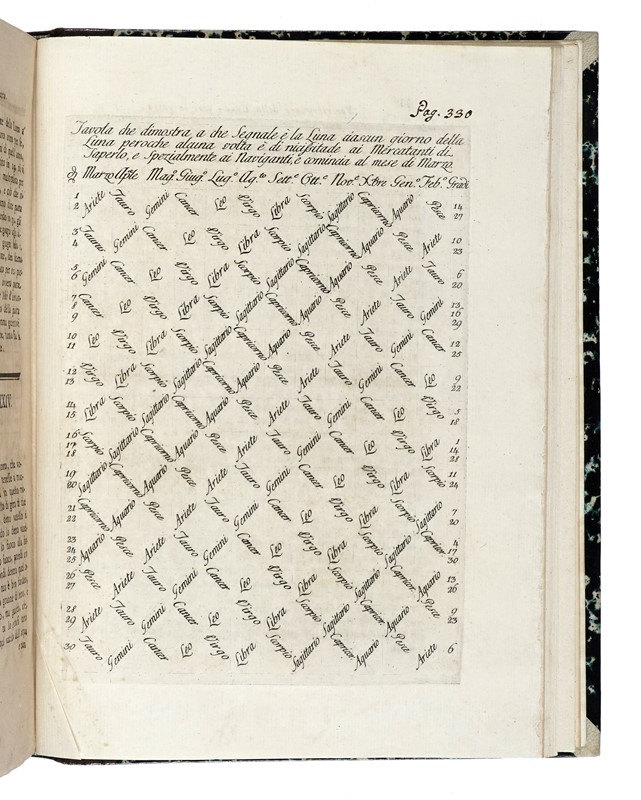 XXIV.
Pag. 330
Tavola che dimostra, a che Segnale è la Luna ciascun giorno della
Luna peroche alcuna volta è di nicistade ai Mercatanti di
Saperlo, e Spezialmente ai Naviganti, e comincia al mese di Marzo.
Marzo Aple Mag.o Giug.o Lug.o Ag.to Sett.e Ott.e Nov.e Xbre Gen.o Feb.o Gradi
1 Ariete Tauro Gemini Cancer Leo Virgo Libra Scorpio Sagittario Capricorno Aquario Pesce 14
2 27
3 Tauro Gemini Cancer Leo Virgo Libra Scorpio Sagittario Capricorno Aquario Pesce Ariete 10
4 23
5 Gemini Cancer Leo Virgo Libra Scorpio Sagittario Capricorno Aquario Pesce Ariete Tauro 6
6 20
7 Cancer Leo Virgo Libra Scorpio Sagittario Capricorno Aquario Pesce Ariete Tauro Gemini 13
8 16
9 29
10 Leo Virgo Libra Scorpio Sagittario Capricorno Aquario Pesce Ariete Tauro Gemini Cancer 12
11 25
12 Virgo Libra Scorpio Sagittario Capricorno Aquario Pesce Ariete Tauro Gemini Cancer Leo 9
13 22
14 Libra Scorpio Sagittario Capricorno Aquario Pesce Ariete Tauro Gemini Cancer Leo Virgo 5
15 18
16 Scorpio Sagittario Capricorno Aquario Pesce Ariete Tauro Gemini Cancer Leo Virgo Libra 1
17 14
18 28
19 Sagittario Capricorno Aquario Pesce Ariete Tauro Gemini Cancer Leo Virgo Libra Scorpio 11
20 24
21 Capricorno Aquario Pesce Ariete Tauro Gemini Cancer Leo Virgo Libra Scorpio Sagittario 7
22 20
23 Aquario Pesce Ariete Tauro Gemini Cancer Leo Virgo Libra Scorpio Sagittario Capricor. 4
24 17
25 30
26 Pesce Ariete Tauro Gemini Cancer Leo Virgo Libra Scorpio Sagittario Capricor. Aquario 13
27 26
28 Ariete Tauro Gemini Cancer Leo Virgo Libra Scorpio Sagittario Capricor. Aquario Pesce 9
29 23
30 Tauro Gemini Cancer Leo Virgo Libra Scorpio Sagittario Capricor. Aquario Pesce Ariete 6